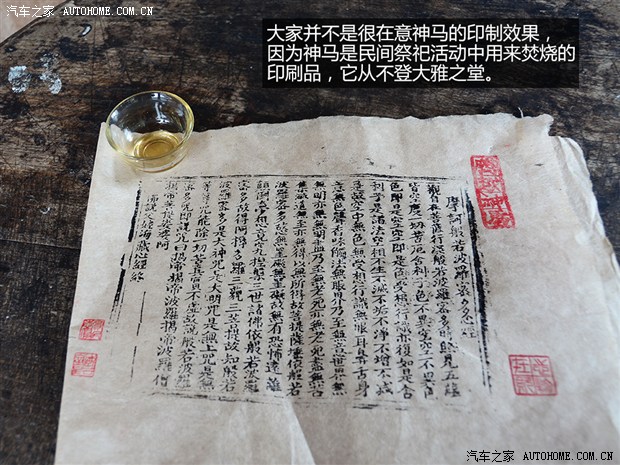 汽车之家 AUTOHOME.COM.CN
大家并不是很在意神马的印制效果，
因为神马是民间祭祀活动中用来焚烧的
印刷品，它从不登大雅之堂。
摩訶般若波羅蜜多心經
觀自在菩薩行深般若波羅蜜多時照見五蘊
皆空度一切苦厄舍利子色不異空空不異色
色即是空空即是色受想行識亦復如是舍
利子是諸法空相不生不滅不垢不淨不增不減
是故空中無色無受想行識無眼耳鼻舌身
意無色聲香味觸法無眼界乃至無意識界無
無明亦無無明盡乃至無老死亦無老死盡無苦
集滅道無智亦無得以無所得故菩提薩埵依般若
波羅蜜多故心無罣礙無罣礙故無有恐怖遠離
顛倒夢想究竟涅槃三世諸佛依般若波羅
蜜多故得阿耨多羅三藐三菩提故知般若
波羅蜜多是大神咒是大明咒是無上咒是無
等等咒能除一切苦真實不虛故說般若波羅
蜜多咒即說咒曰揭帝揭帝波羅揭帝波羅僧
揭帝菩提薩婆訶
心經終
汽车之家 AUTOHOME.COM.CN